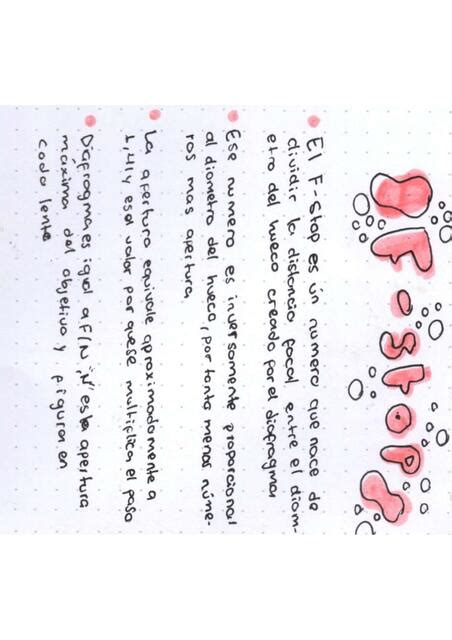 F-stop
El F-Stop es un numero que nace de
dividir la distancia focal entre el diam-
etro del hueco creado por el diafragma
Ese numero es inversamente proporcional
al diametro del hueco, por tanto menos núme-
ros mas apertura
La apertura equivale aproximadamente a
1,41 y es el valor por que se multiplica el paso
Diafragma es igual a F/N, "N" esta apertura
máxima del objetivo y figura en
cada lente